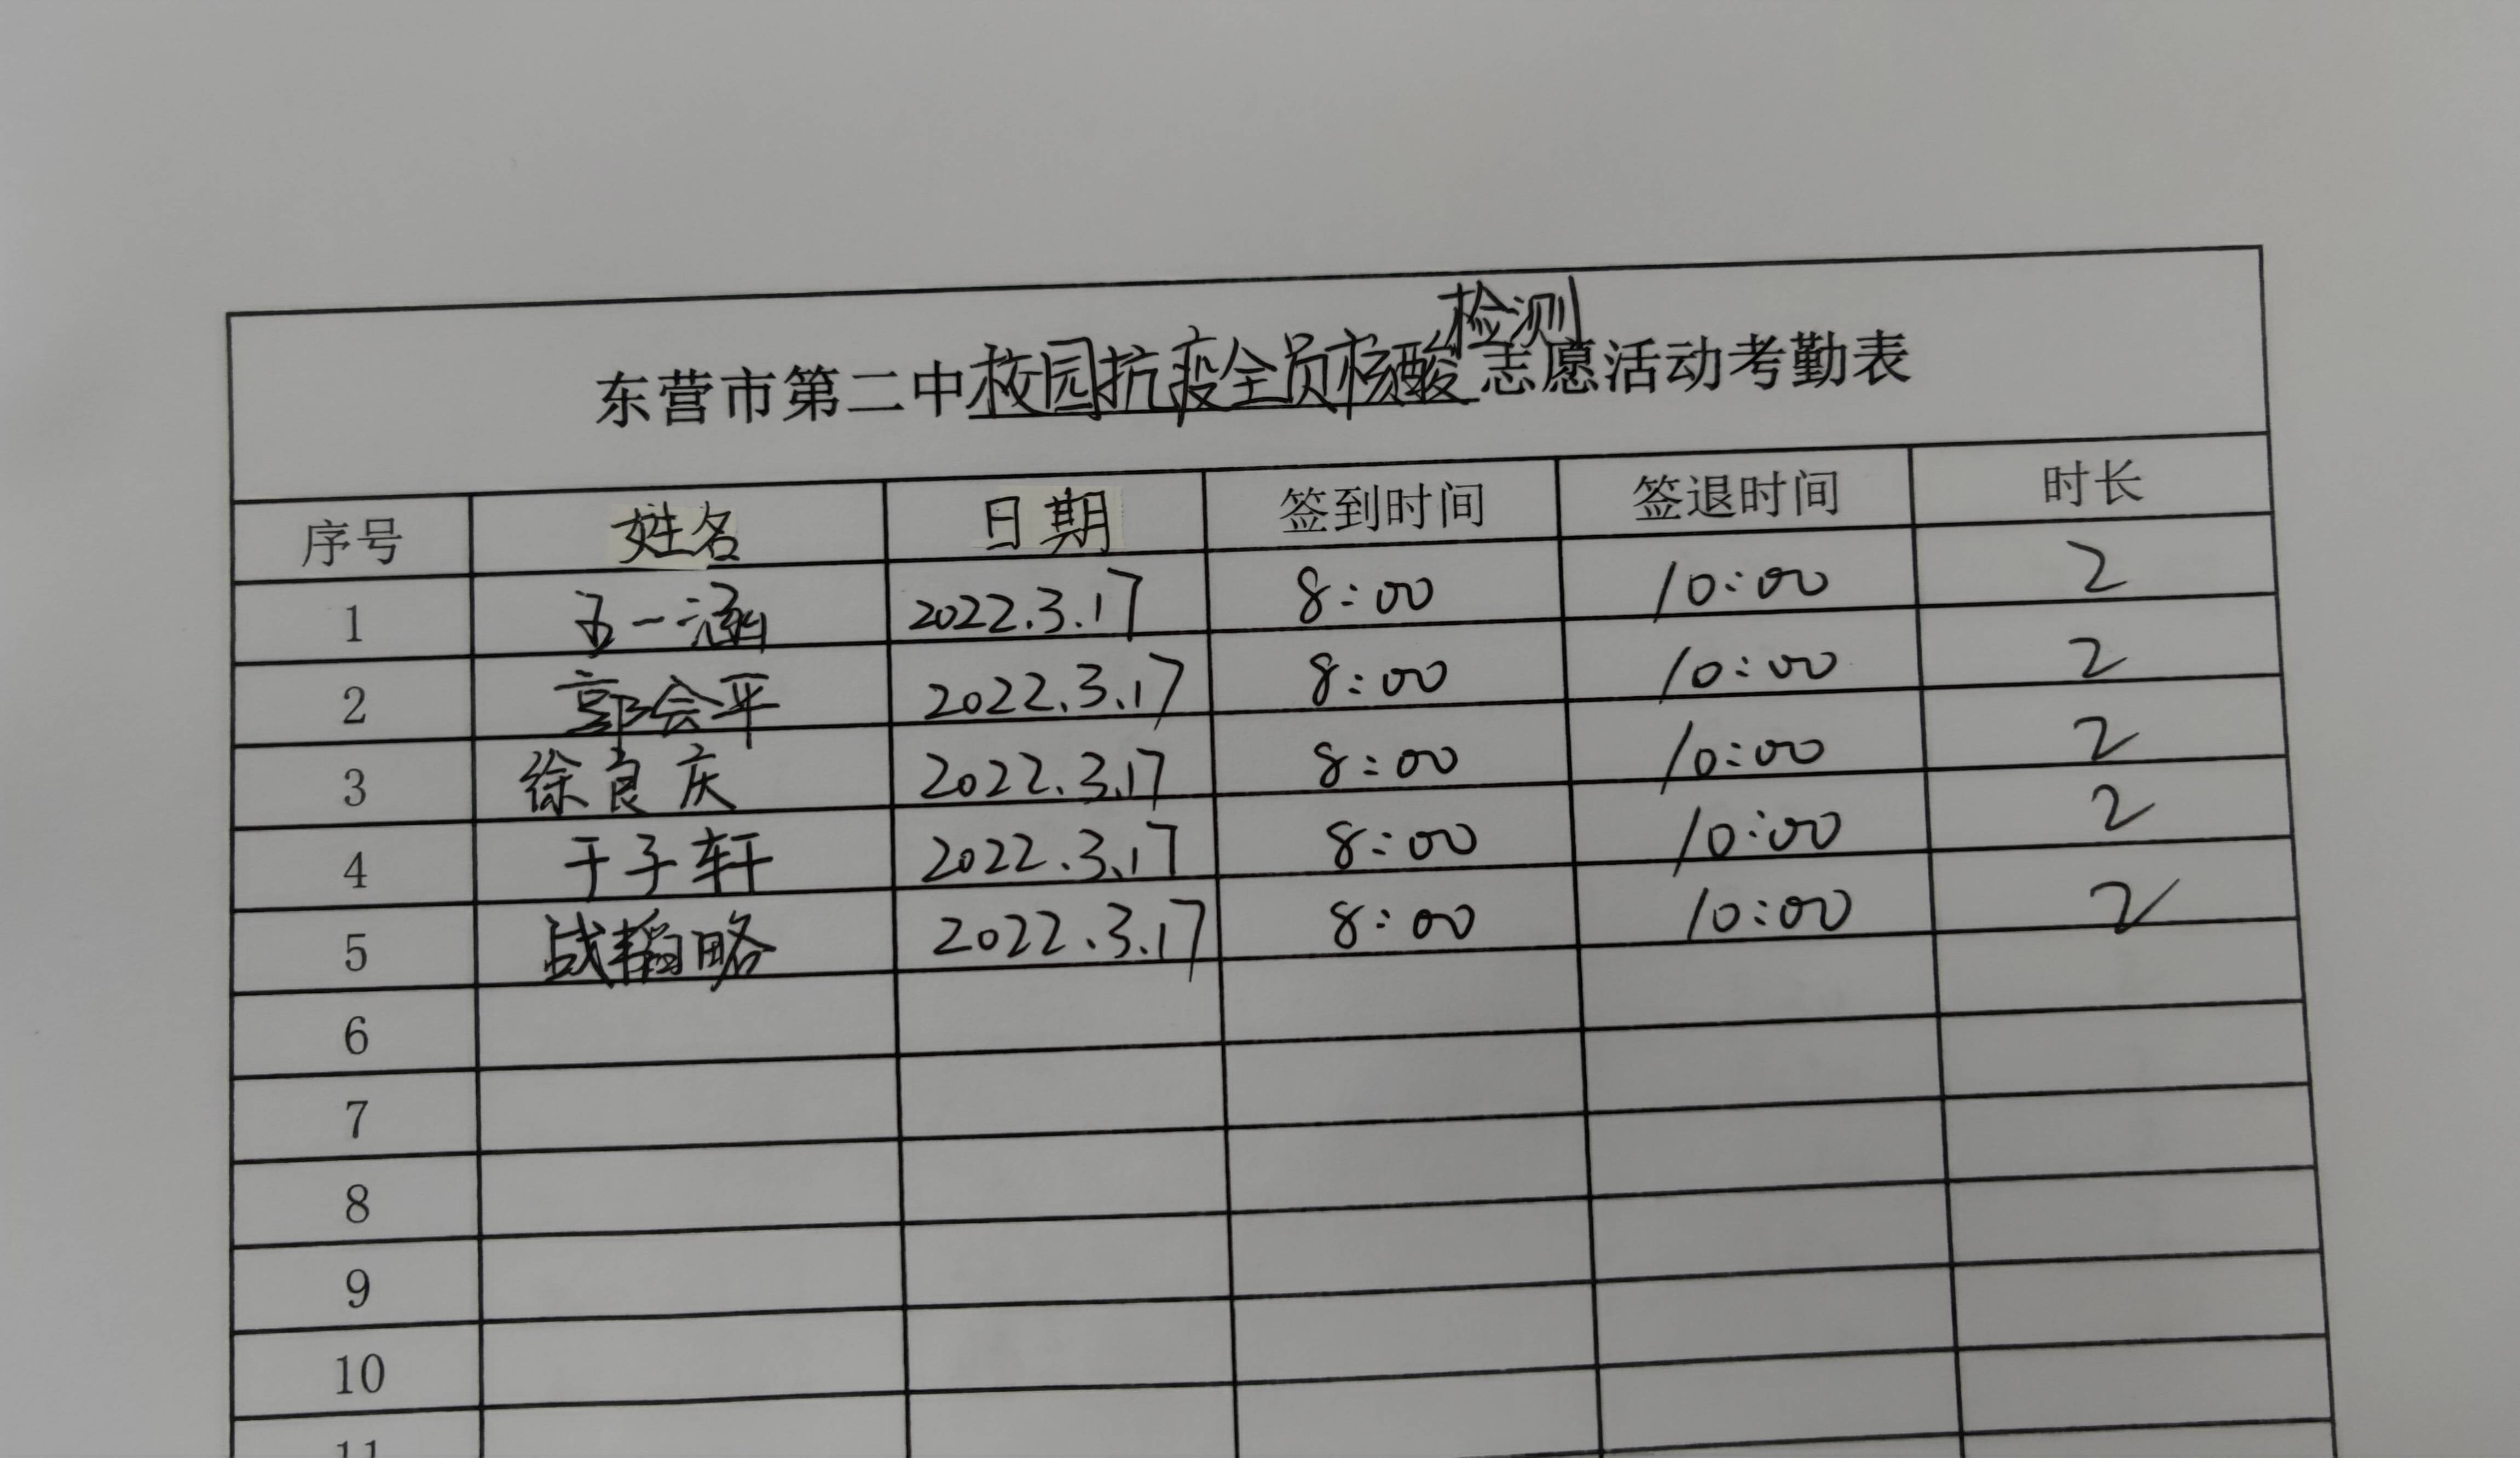 东营市第二中校园抗疫全员核酸检测志愿活动考勤表
序号 姓名 日期 签到时间 签退时间 时长
1 一涵 2022.3.17 8:00 10:00 2
2 郭会平 2022.3.17 8:00 10:00 2
3 徐良庆 2022.3.17 8:00 10:00 2
4 于子轩 2022.3.17 8:00 10:00 2
5 战韬略 2022.3.17 8:00 10:00 2
6
7
8
9
10
11